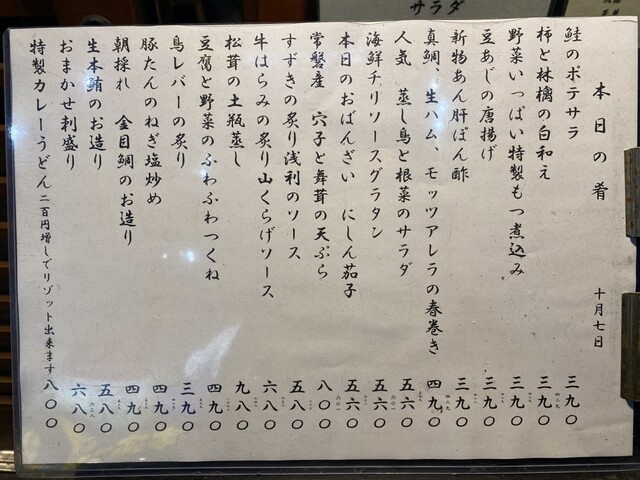 サラダ
本日の肴 十月七日
鮭のポテサラ 三九〇
柿と林檎の白和え 三九〇
野菜いっぱい特製もつ煮込み 三九〇
豆あじの唐揚げ 三九〇
新物あん肝ぽん酢 三九〇
真鯛、生ハム、モッツアレラの春巻き 四九〇
人気 蒸し鳥と根菜のサラダ 五六〇
海鮮チリソースグラタン 五六〇
本日のおばんざい にしん茄子 五六〇
常磐産 穴子と舞茸の天ぷら 八〇〇
すずきの炙り浅利のソース 五八〇
牛はらみの炙り山くらげソース 六八〇
松茸の土瓶蒸し 九八〇
豆腐と野菜のふわふわつくね 四九〇
鳥レバーの炙り 三九〇
豚たんのねぎ塩炒め 四九〇
朝採れ 金目鯛のお造り 四九〇
生本鮪のお造り 五八〇
おまかせ刺盛り 六八〇
特製カレーうどん 二百円増しでリゾット出来ます 八〇〇